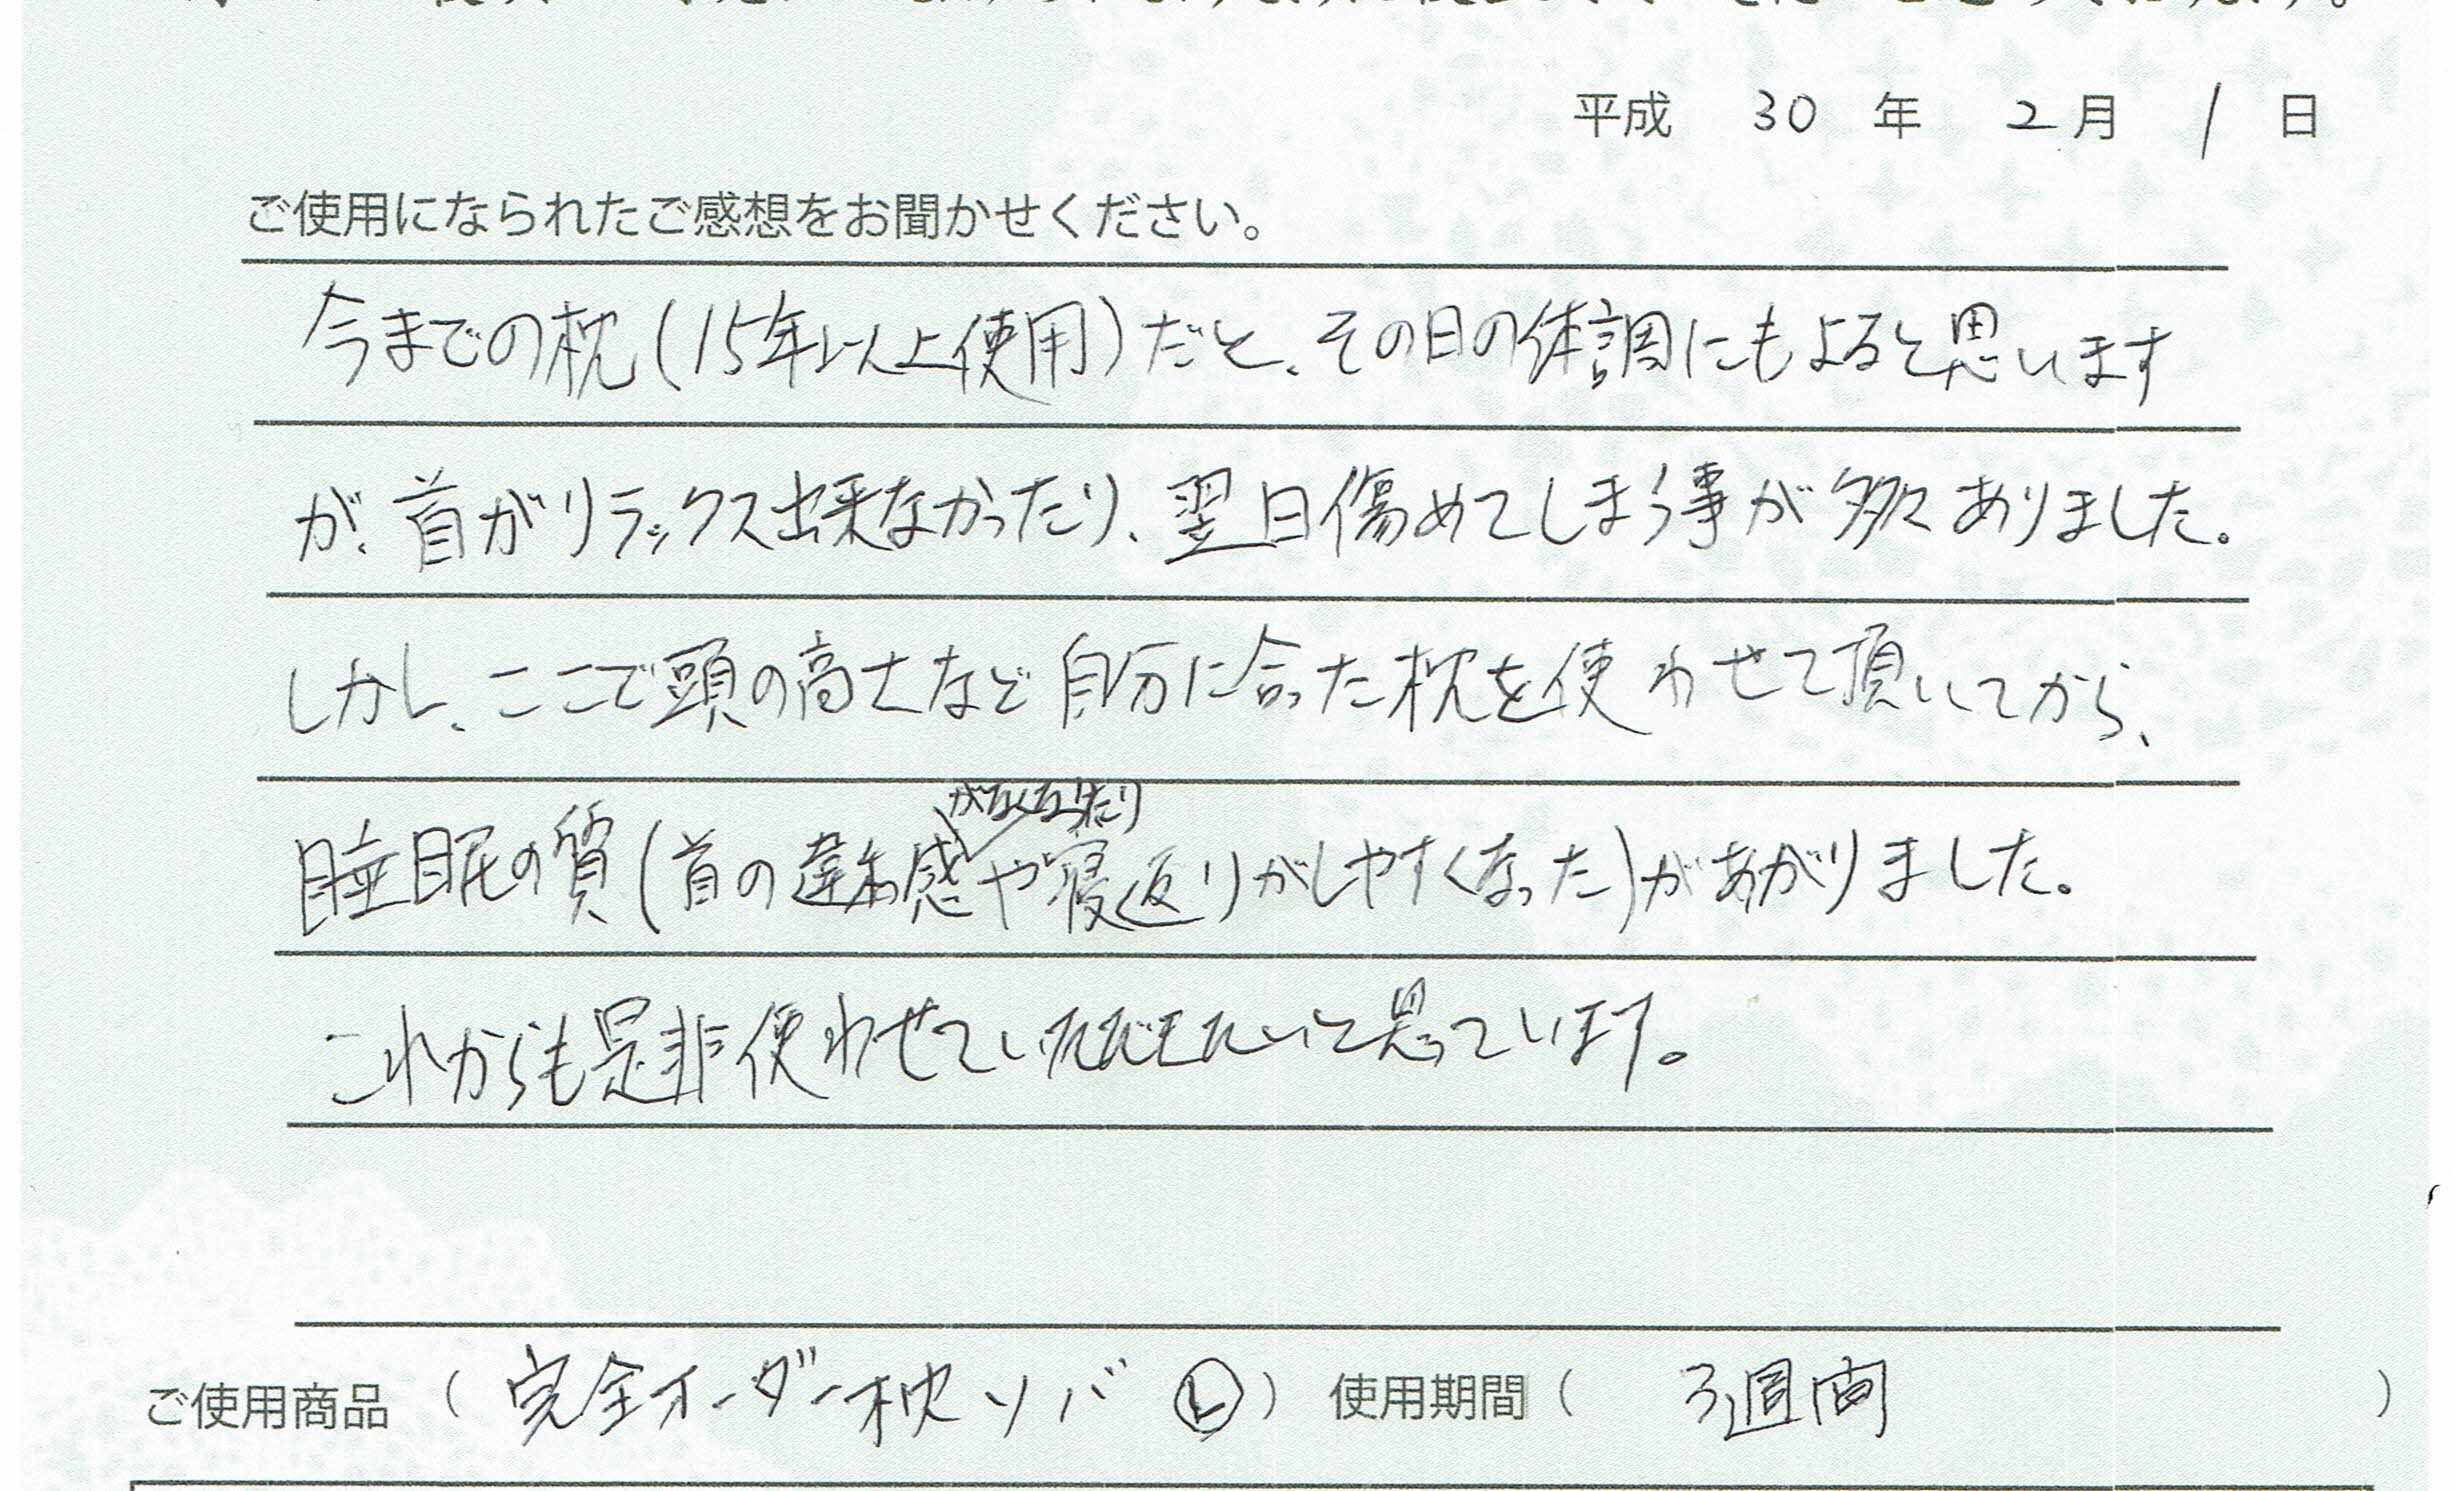 平成 30 年 2 月 1 日
ご使用になられたご感想をお聞かせください。
今までの枕(15年以上使用)だと、その日の体調にもよると思います
が、首がリラックス出来なかったり、翌日傷めてしまう事が多々ありました。
しかし、ここで頭の高さなど自分に合った枕を使わせて頂いてから、
がなくなったり
睡眠の質(首の違和感や寝返りがしやすくなった)があがりました。
これからも是非使わせていただきたいと思っています。
ご使用商品 ( 完全オーダー枕ソバ Ⓛ ) 使用期間 ( 3週間 )